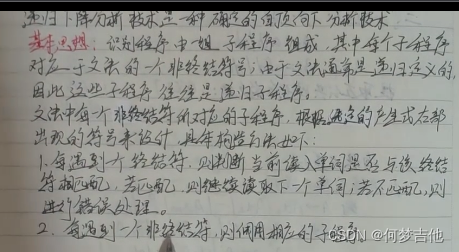 递归下降分析技术是一种确定的自顶向下分析技术
基本思想：识别程序由一组子程序组成，其中每个子程序
对应于文法的一个非终结符号；由于文法通常是递归定义的，
因此这些子程序往往是递归子程序。
文法中每个非终结符所对应的子程序，根据选定的产生式右部
出现的符号来设计，具体构造方法如下：
1. 每遇到一个终结符，则判断当前读入单词是否与该终结
符相匹配，若匹配，则继续读取下一个单词；若不匹配，则
进行错误处理。
2. 每遇到一个非终结符，则调用相应的子程序
CSDN @何梦吉他